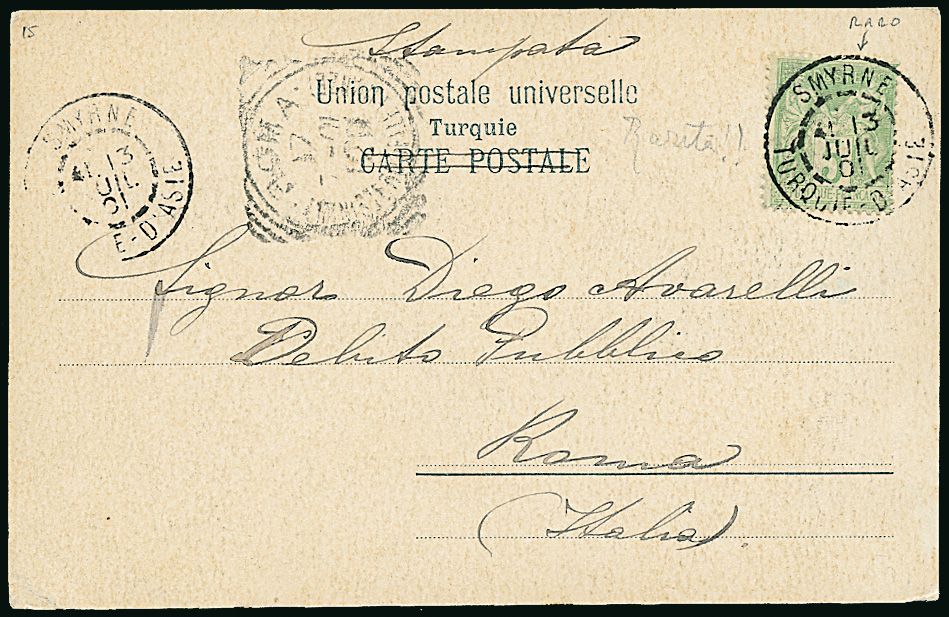 15
RARO
Stampata
Union postale universelle
Turquie
CARTE POSTALE
Rarità!!
SMYRNE
13
JUIL
01
E-D'ASIE
ROMA
7
SMYRNE
13
JUIL
01
TURQUIE-D'ASIE
Signor Diego Avarelli
Debito Pubblico
Roma
(Italia)